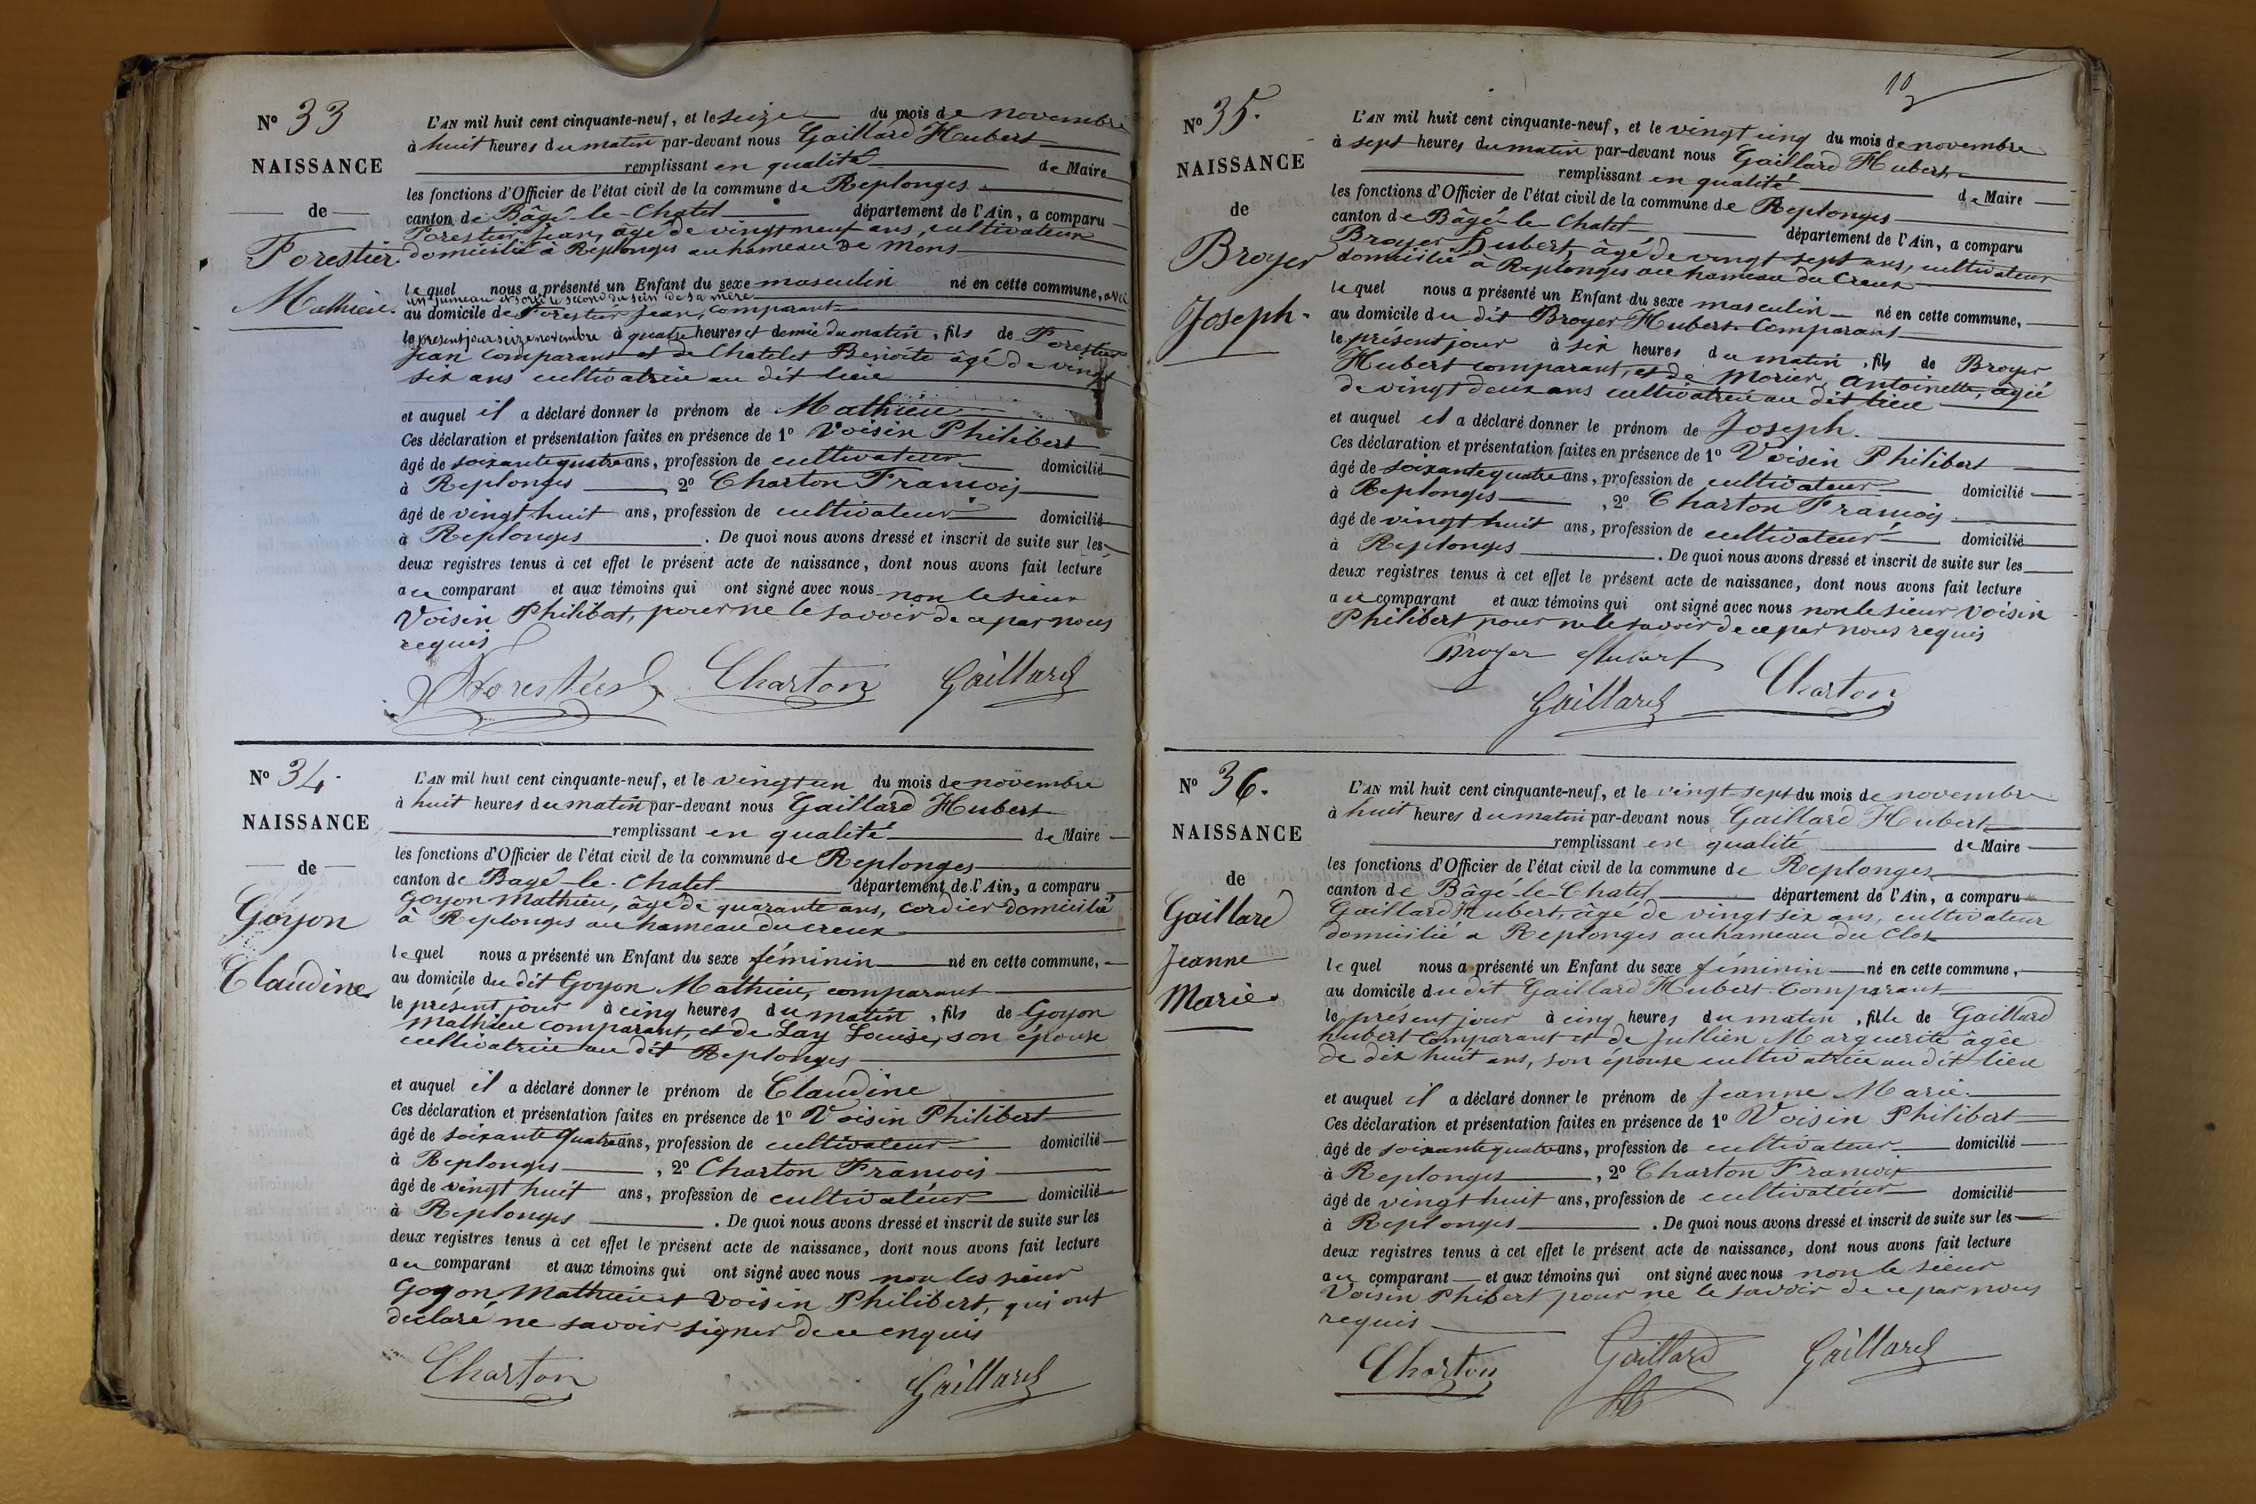 Nº 33
NAISSANCE
de
Forestier
Mathieu
L'AN mil huit cent cinquante-neuf, et le seize du mois de novembre
à huit heures du matin par-devant nous Gaillard Hubert
remplissant en qualité de Maire
les fonctions d'Officier de l'état civil de la commune de Replonges
canton de Bâgé-le-Chatel département de l'Ain, a comparu
Forestier Jean, âgé de vingt neuf ans, cultivateur
domicilié à Replonges au hameau de Mons
lequel nous a présenté un Enfant du sexe masculin né en cette commune, avec
un jumeau et sorti le second du sein de sa mère
au domicile de Forestier Jean, comparant
le présent jour seize novembre à quatre heures et demie du matin, fils de Forestier
Jean comparant et de Chatelet Benoite âgé de vingt
six ans cultivatrice au dit lieu
et auquel il a déclaré donner le prénom de Mathieu
Ces déclaration et présentation faites en présence de 1º Voisin Philibert
âgé de soixante quatre ans, profession de cultivateur domicilié
à Replonges, 2º Charton Francois
âgé de vingt huit ans, profession de cultivateur domicilié
à Replonges. De quoi nous avons dressé et inscrit de suite sur les
deux registres tenus à cet effet le présent acte de naissance, dont nous avons fait lecture
au comparant et aux témoins qui ont signé avec nous non le sieur
Voisin Philibert, pour ne le savoir de ce par nous
requis
Forestier Charton Gaillard
Nº 34
NAISSANCE
de
Goyon
Claudine
L'AN mil huit cent cinquante-neuf, et le vingt un du mois de novembre
à huit heures du matin par-devant nous Gaillard Hubert
remplissant en qualité de Maire
les fonctions d'Officier de l'état civil de la commune de Replonges
canton de Bagé-le-Chatel département de l'Ain, a comparu
Goyon Mathieu, âgé de quarante ans, cordier domicilié
à Replonges au hameau du creux
lequel nous a présenté un Enfant du sexe féminin né en cette commune,
au domicile du dit Goyon Mathieu, comparant
le présent jour à cinq heures du matin, fils de Goyon
Mathieu comparant, et de Lay Louise, son épouse
cultivatrice au dit Replonges
et auquel il a déclaré donner le prénom de Claudine
Ces déclaration et présentation faites en présence de 1º Voisin Philibert
âgé de soixante quatre ans, profession de cultivateur domicilié
à Replonges, 2º Charton Francois
âgé de vingt huit ans, profession de cultivateur domicilié
à Replonges. De quoi nous avons dressé et inscrit de suite sur les
deux registres tenus à cet effet le présent acte de naissance, dont nous avons fait lecture
au comparant et aux témoins qui ont signé avec nous non les sieur
Goyon Mathieu et Voisin Philibert, qui ont
déclaré ne savoir signer de ce enquis
Charton Gaillard
10
Nº 35.
NAISSANCE
de
Broyer
Joseph.
L'AN mil huit cent cinquante-neuf, et le vingt cinq du mois de novembre
à sept heures du matin par-devant nous Gaillard Hubert
remplissant en qualité de Maire
les fonctions d'Officier de l'état civil de la commune de Replonges
canton de Bâgé-le Chatel département de l'Ain, a comparu
Broyer Hubert, âgé de vingt sept ans, cultivateur
domicilié à Replonges au hameau du Creux
lequel nous a présenté un Enfant du sexe masculin né en cette commune,
au domicile du dit Broyer Hubert. Comparant
le présent jour à six heures du matin, fils de Broyer
Hubert comparant, et de Morier Antoinette, âgée
de vingt deux ans cultivatrice au dit lieu
et auquel il a déclaré donner le prénom de Joseph.
Ces déclaration et présentation faites en présence de 1º Voisin Philibert
âgé de soixante quatre ans, profession de cultivateur domicilié
à Replonges, 2º Charton Francois
âgé de vingt huit ans, profession de cultivateur domicilié
à Replonges. De quoi nous avons dressé et inscrit de suite sur les
deux registres tenus à cet effet le présent acte de naissance, dont nous avons fait lecture
au comparant et aux témoins qui ont signé avec nous non le sieur Voisin
Philibert pour ne le savoir de ce par nous requis
Broyer Hubert Charton
Gaillard
Nº 36.
NAISSANCE
de
Gaillard
Jeanne
Marie
L'AN mil huit cent cinquante-neuf, et le vingt-sept du mois de novembre
à huit heures du matin par-devant nous Gaillard Hubert
remplissant en qualité de Maire
les fonctions d'Officier de l'état civil de la commune de Replonges
canton de Bâgé-le-Chatel département de l'Ain, a comparu
Gaillard Hubert, âgé de vingt six ans, cultivateur
domicilié a Replonges au hameau du Clos
lequel nous a présenté un Enfant du sexe féminin né en cette commune,
au domicile du dit Gaillard Hubert Comparant
le présent jour à cinq heures du matin, fille de Gaillard
hubert Comparant et de Jullien Marguerite âgée
de dix huit ans, son épouse cultivatrice au dit lieu
et auquel il a déclaré donner le prénom de Jeanne Marie
Ces déclaration et présentation faites en présence de 1º Voisin Philibert
âgé de soixante quatre ans, profession de cultivateur domicilié
à Replonges, 2º Charton Francois
âgé de vingt huit ans, profession de cultivateur domicilié
à Replonges. De quoi nous avons dressé et inscrit de suite sur les
deux registres tenus à cet effet le présent acte de naissance, dont nous avons fait lecture
au comparant et aux témoins qui ont signé avec nous non le sieur
Voisin Phibert pour ne le savoir de ce par nous
requis
Charton Gaillard Gaillard